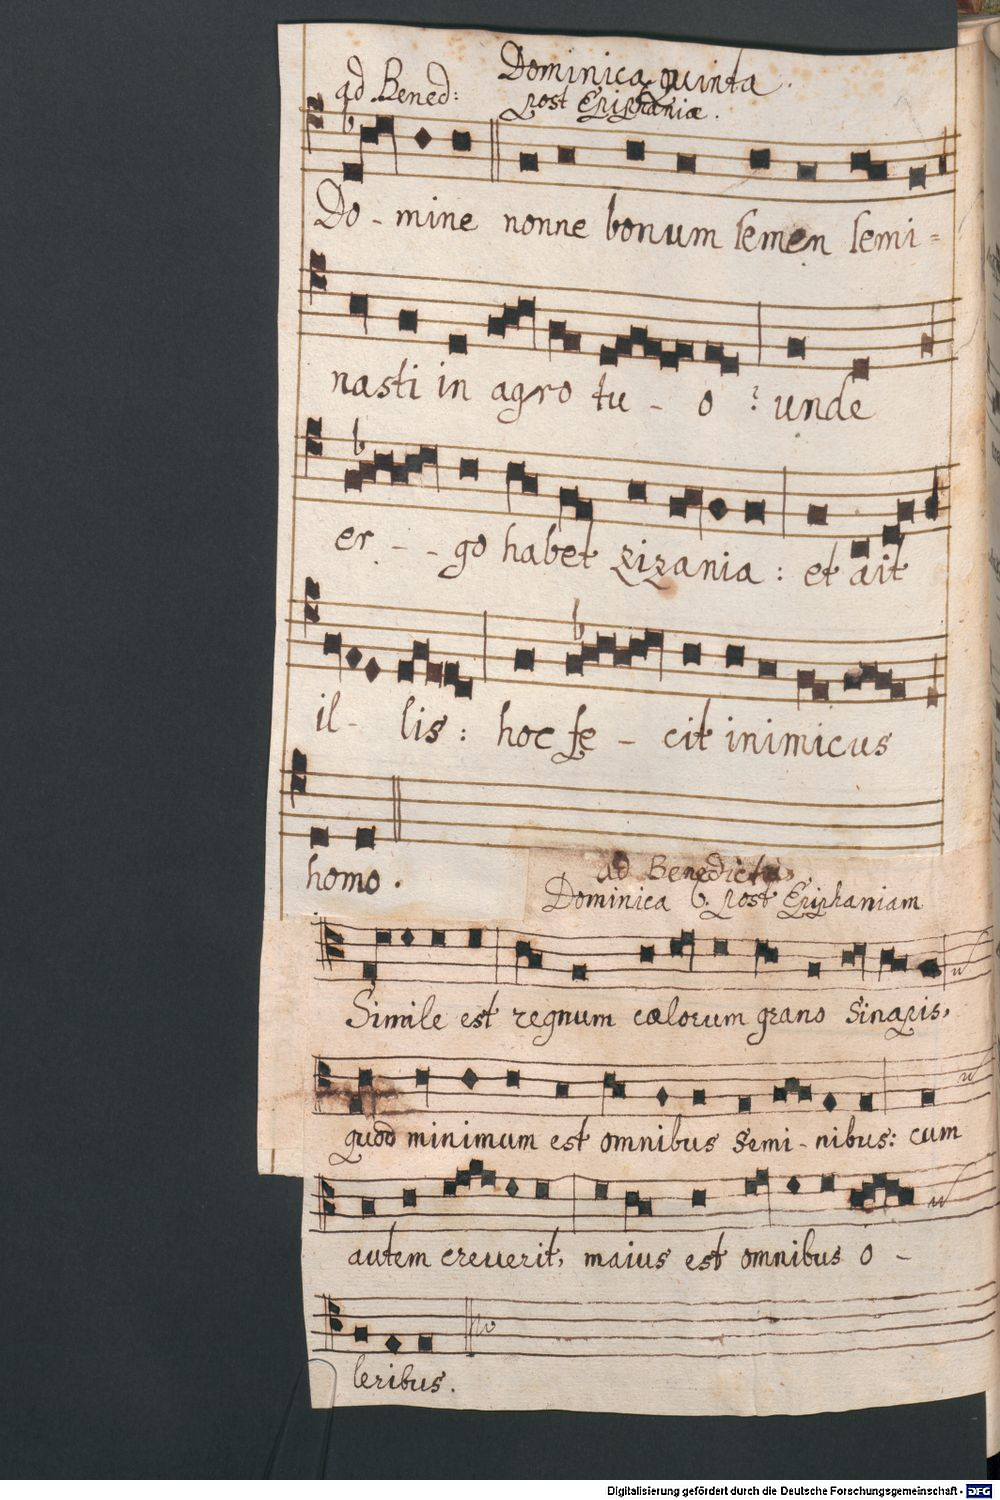 ad Bened: Dominica quinta
post Epiphaniæ.
Do - mine nonne bonum semen semi =
nasti in agro tu - o ? unde
er - - go habet zizania : et ait
il - lis : hoc fe - cit inimicus
homo .
ad Benedictus
Dominica 6. post Epiphaniam
Simile est regnum cælorum grano Sinapis,
quod minimum est omnibus Semi - nibus: cum
autem creverit, maius est omnibus o -
leribus .
Digitalisierung gefördert durch die Deutsche Forschungsgemeinschaft - DFG